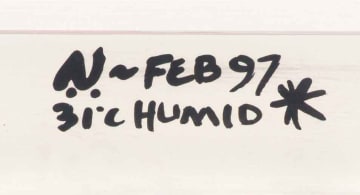 N ~ FEB 97
31°C HUMID *